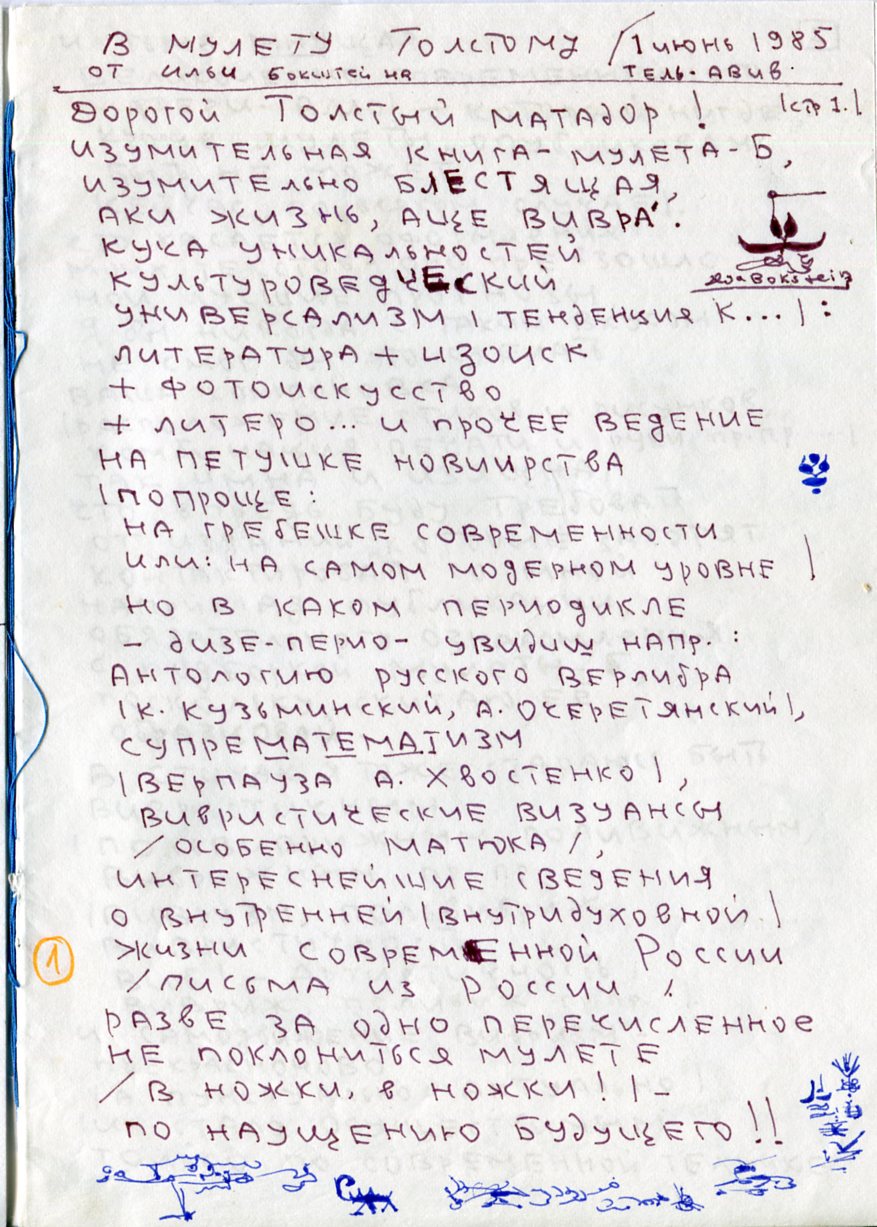 В МУЛЕТУ ТОЛСТОМУ / 1 ИЮНЬ 1985
ОТ ИЛЬИ БОКШТЕЙНА ТЕЛЬ-АВИВ.
ДОРОГОЙ ТОЛСТЫЙ МАТАДОР | |СТР 1.|
ИЗУМИТЕЛЬНАЯ КНИГА-МУЛЕТА-Б,
ИЗУМИТЕЛЬНО БЛЕСТЯЩАЯ,
АКИ ЖИЗНЬ, АЩЕ ВИВРА!
КУЧА УНИКАЛЬНОСТЕЙ
КУЛЬТУРОВЕДЧЕСКИЙ
УНИВЕРСАЛИЗМ ТЕНДЕНЦИЯ К...|:
ЛИТЕРАТУРА + ИЗОИСК
+ ФОТОИСКУССТВО
+ ЛИТЕРО... И ПРОЧЕЕ ВЕДЕНИЕ
НА ПЕТУШКЕ НОВИИРСТВА
|ПОПРОЩЕ:
НА ГРЕБЕШКЕ СОВРЕМЕННОСТИ
ИЛИ: НА САМОМ МОДЕРНОМ УРОВНЕ |
НО В КАКОМ ПЕРИОДИКЛЕ
- ДИЗЕ-ПЕРИО- УВИДИШ НАПР.:
АНТОЛОГИЮ РУССКОГО ВЕРЛИБРА
|К. КУЗЬМИНСКИЙ, А. ОЧЕРЕТЯНСКИЙ|,
СУПРЕМАТЕМАТИЗМ
|ВЕРПАУЗА А. ХВОСТЕНКО|,
ВИВРИСТИЧЕСКИЕ ВИЗУАНСЫ
/ОСОБЕННО МАТЮКА/,
ИНТЕРЕСНЕЙШИЕ СВЕДЕНИЯ
О ВНУТРЕННЕЙ |ВНУТРИДУХОВНОЙ|
1 ЖИЗНИ СОВРЕМЕННОЙ РОССИИ
/ПИСЬМА ИЗ РОССИИ/.
РАЗВЕ ЗА ОДНО ПЕРЕЧИСЛЕННОЕ
НЕ ПОКЛОНИТЬСЯ МУЛЕТЕ
/В НОЖКИ, В НОЖКИ!| -
ПО НАУЩЕНИЮ БУДУЩЕГО!!